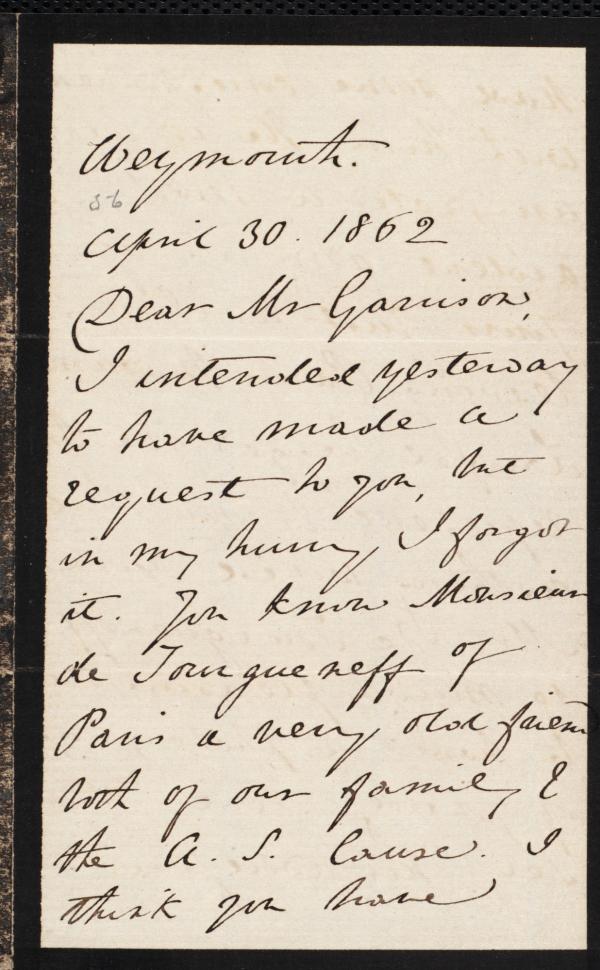 Weymouth.
56
April 30. 1862
Dear Mr Garrison,
I intended yesterday
to have made a
request to you, but
in my hurry I forgot
it. You know Monsieur
de Tourgueneff of
Paris a very old friend
both of our family &
the A. S. Cause. I
think you have